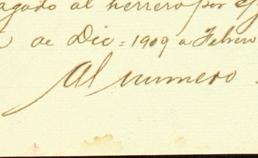 agado al herrero por
de Dic = 1909 a Febrero
Al numero